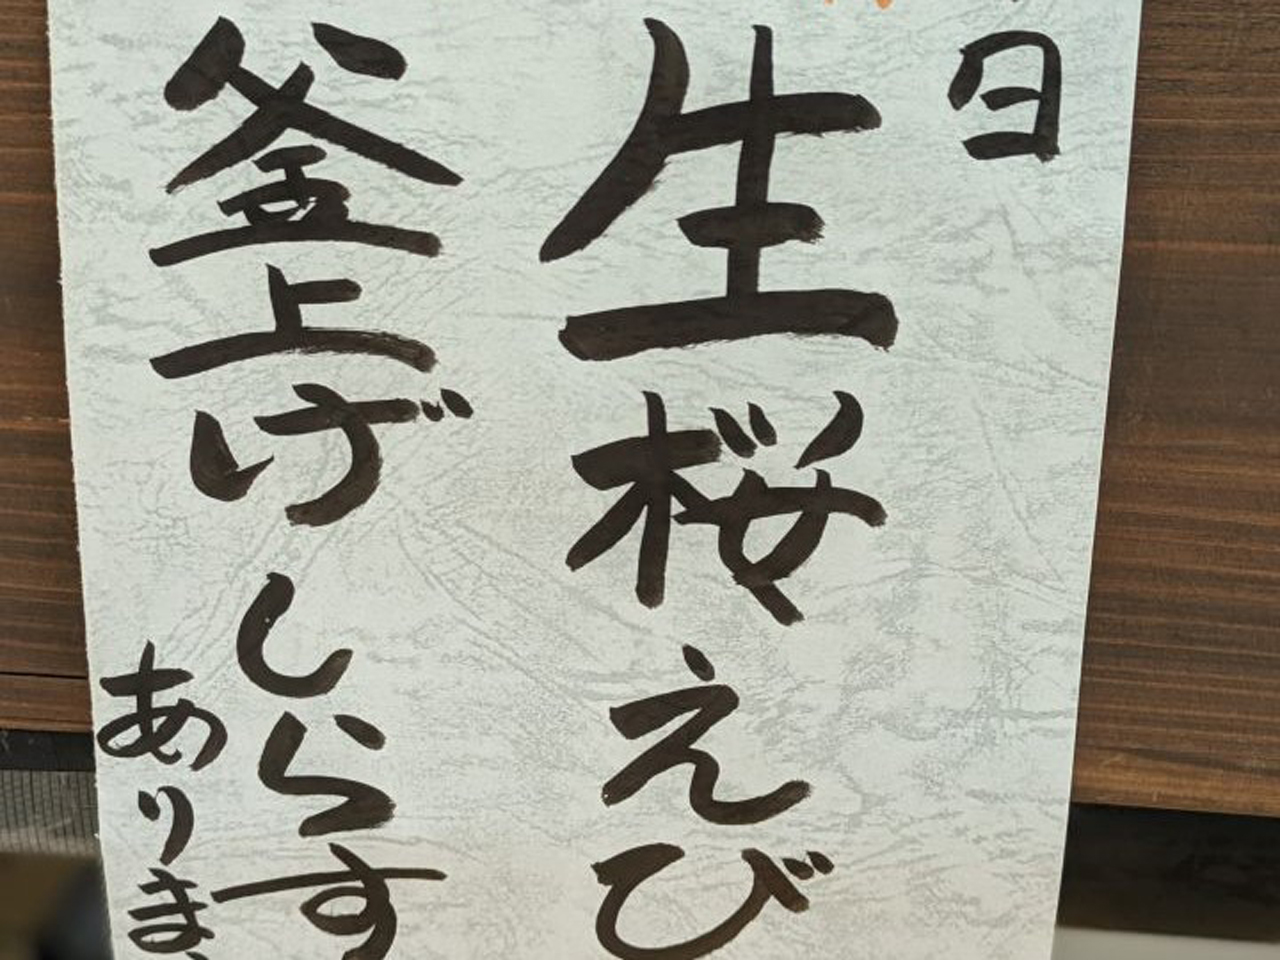 日
生桜えび
釜上げしらす
ありま